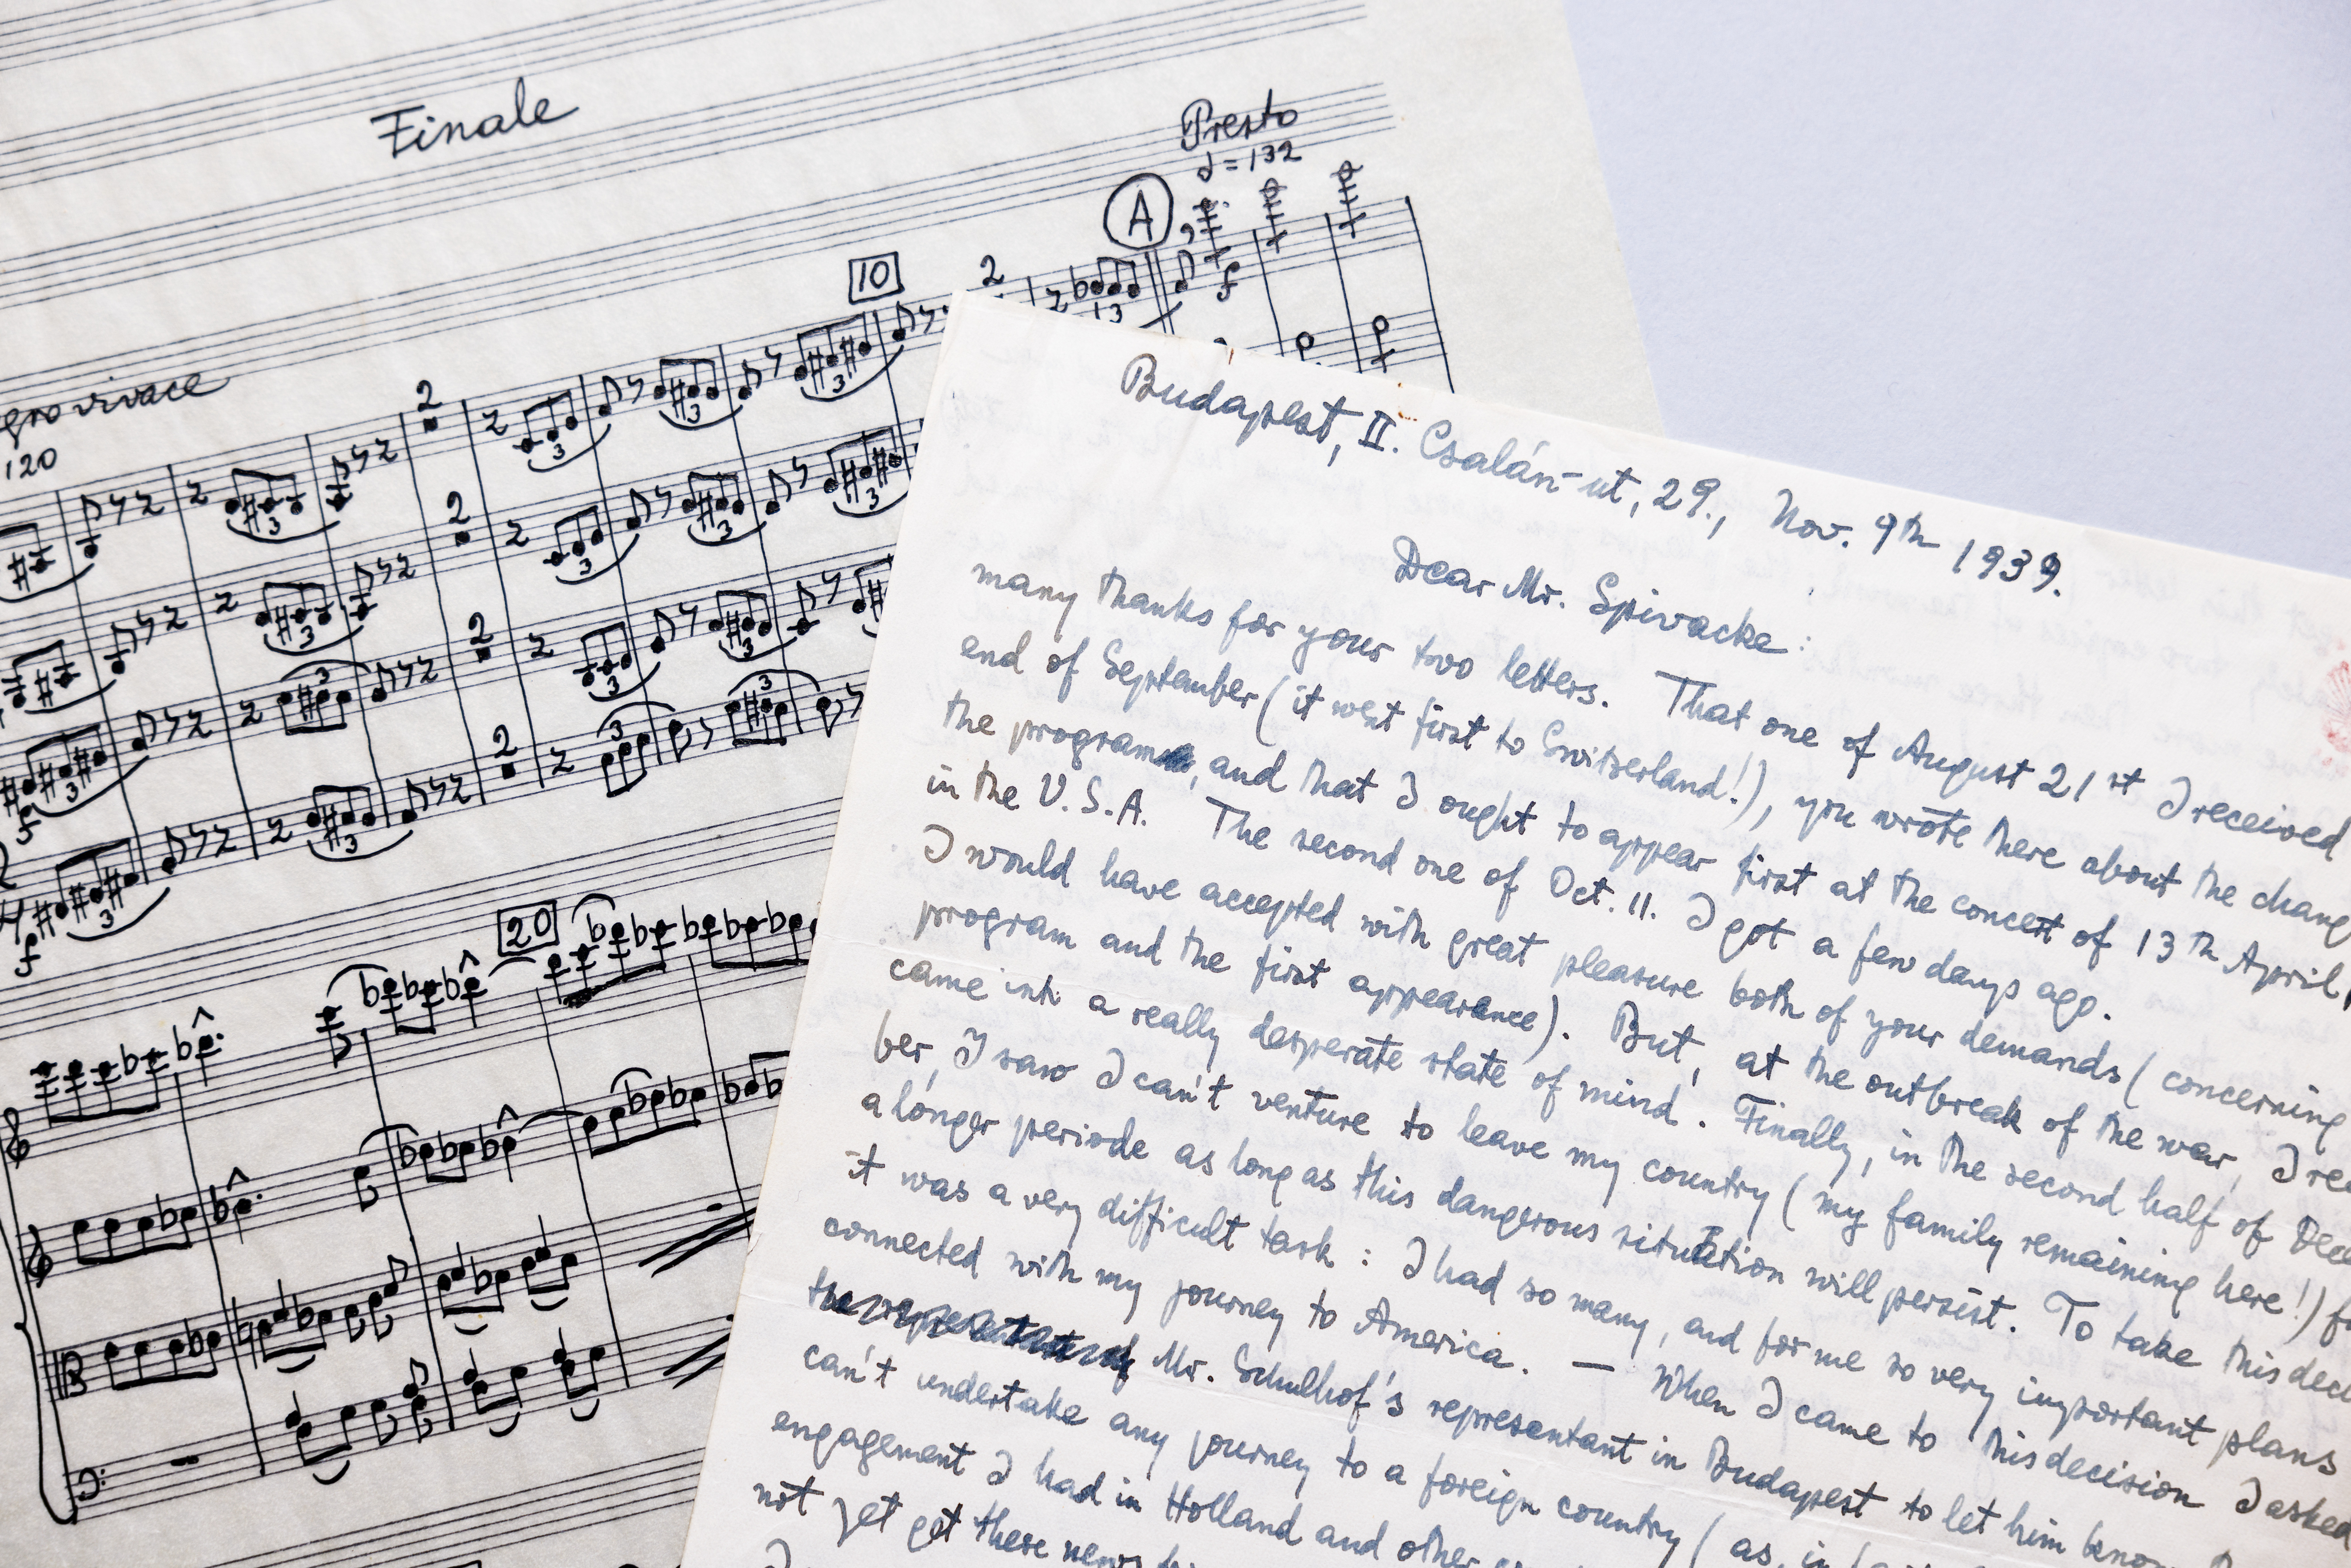 Finale
Presto
♩ = 132
A
10
2
3
grovivace
120
20
Budapest, II. Csalán-ut, 29., Nov. 9th 1939.
Dear Mr. Spivacke:
many thanks for your two letters. That one of August 21st I received
end of September (it went first to Switzerland!), you wrote there about the chang
the program, and that I ought to appear first at the concert of 13th April,
in the U.S.A. The second one of Oct. 11. I got a few days ago.
I would have accepted with great pleasure both of your demands (concerning
program and the first appearance). But, at the outbreak of the war, I re
came into a really desperate state of mind. Finally, in the second half of Dece
ber, I saw I can't venture to leave my country (my family remaining here!) f
a longer periode as long as this dangerous situation will persist. To take this dec
it was a very difficult task: I had so many, and for me so very important plans
connected with my journey to America. — When I came to this decision I asked
Mr. Schulhof's representant in Budapest to let him know
can't undertake any journey to a foreign country (as, in
engagement I had in Holland and other
not yet get these news
I